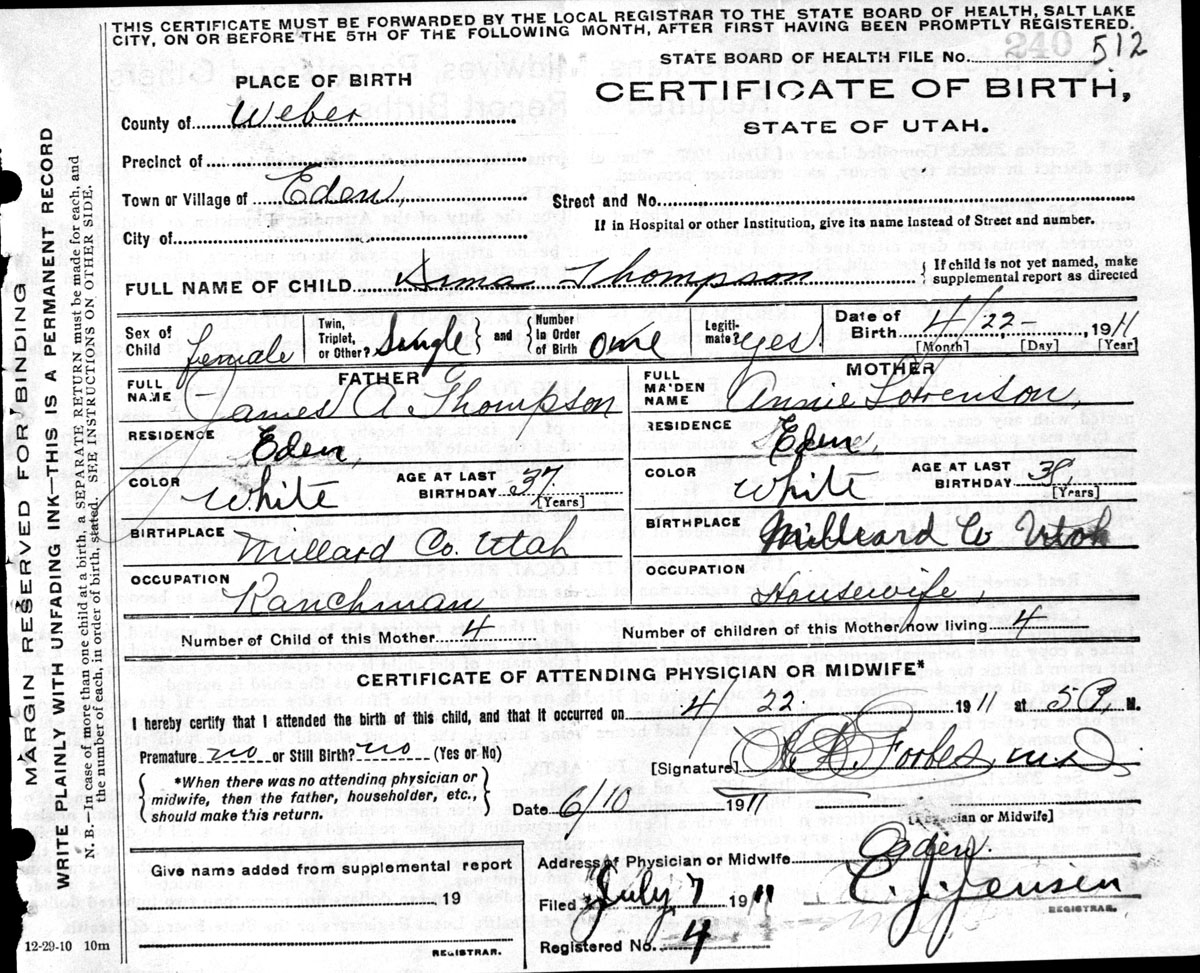 THIS CERTIFICATE MUST BE FORWARDED BY THE LOCAL REGISTRAR TO THE STATE BOARD OF HEALTH, SALT LAKE
CITY, ON OR BEFORE THE 5TH OF THE FOLLOWING MONTH, AFTER FIRST HAVING BEEN PROMPTLY REGISTERED.
STATE BOARD OF HEALTH FILE No. 240 512
PLACE OF BIRTH
CERTIFICATE OF BIRTH,
STATE OF UTAH.
County of Weber
Precinct of
Town or Village of Eden,
Street and No.
City of
If in Hospital or other Institution, give its name instead of Street and number.
FULL NAME OF CHILD Thompson
{ If child is not yet named, make
supplemental report as directed
Sex of Child female
Twin, Triplet, or Other? Single } and { Number In Order of Birth one
Legiti-mate? yes.
Date of Birth 4/22- 1911
[Month] [Day] [Year]
FATHER
FULL NAME James A Thompson
RESIDENCE Eden,
COLOR White
AGE AT LAST BIRTHDAY 37 [Years]
BIRTHPLACE Millard Co. Utah
OCCUPATION Ranchman
MOTHER
FULL MAIDEN NAME Annie Sorenson,
RESIDENCE Eden,
COLOR White
AGE AT LAST BIRTHDAY [Years]
BIRTHPLACE Milleard Co Utah
OCCUPATION Housewife,
Number of Child of this Mother 4
Number of children of this Mother now living 4
CERTIFICATE OF ATTENDING PHYSICIAN OR MIDWIFE*
I hereby certify that I attended the birth of this child, and that it occurred on 4/22 1911 at 5 P, M.
Premature no or Still Birth? no (Yes or No)
[Signature] Forbes M.D
[Physician or Midwife]
{ *When there was no attending physician or
midwife, then the father, householder, etc.,
should make this return. }
Date 6/10 1911
Give name added from supplemental report
19
REGISTRAR.
Address of Physician or Midwife Ogden.
Filed July 7 1911 C. J. Jensen
REGISTRAR.
Registered No. 4
12-29-10 10m
MARGIN RESERVED FOR BINDING
WRITE PLAINLY WITH UNFADING INK—THIS IS A PERMANENT RECORD
N. B. In case of more than one child at a birth, a SEPARATE RETURN must be made for each, and
the number of each, in order of birth, stated. SEE INSTRUCTIONS ON OTHER SIDE.